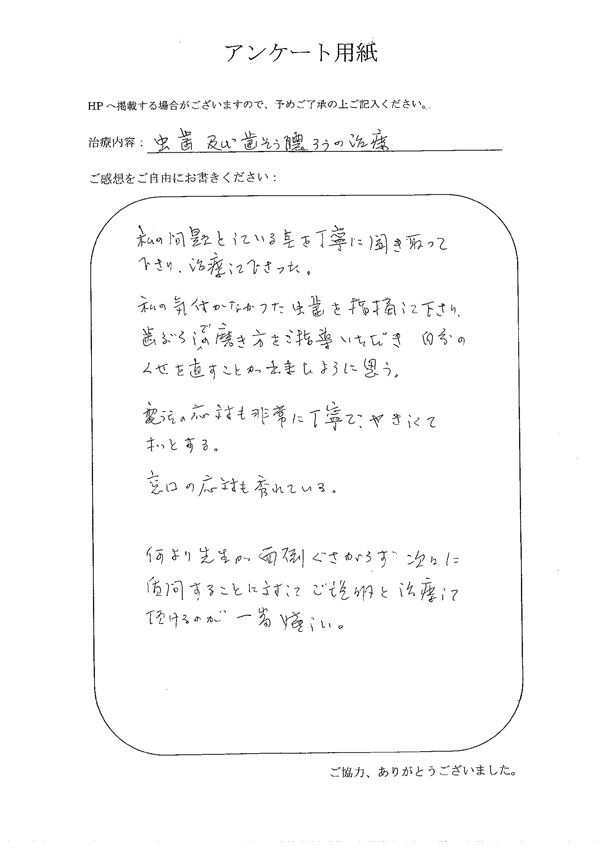 アンケート用紙
HPへ掲載する場合がございますので、予めご了承の上ご記入ください。
治療内容： 虫歯 及び 歯そう膿ろうの治療
ご感想をご自由にお書きください：
私の問題としている点を丁寧に聞き取って
下さり、治療して下さった。
私の気付かなかった虫歯を指摘して下さり、
歯ぶらしでの磨き方をご指導いただき 自分の
くせを直すことが出来たように思う。
電話の応対も非常に丁寧で、やさしくて
ホッとする。
窓口の応対も秀れている。
何より先生が面倒くさがらず 次々に
質問することに対して ご説明と治療して
頂けるのが 一番 嬉しい。
ご協力、ありがとうございました。